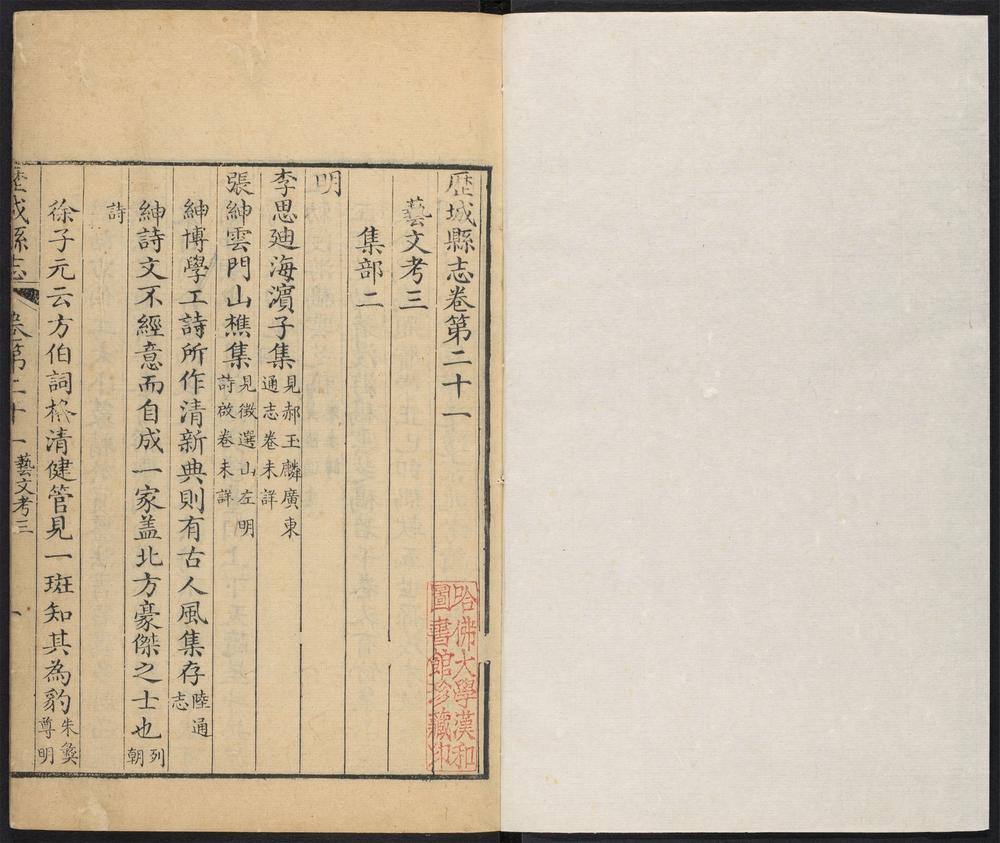 歷城縣志卷第二十一
藝文考三
集部二
明
李思廸海濵子集見郝玉麟廣東
通志卷未詳
張紳雲門山樵集見徴選山左明
詩啟卷未詳
紳博學工詩所作清新典則有古人風集存陸通
志
紳詩文不經意而自成一家盖北方豪傑之士也列
朝
詩
徐子元云方伯詞格清健管見一斑知其為豹朱彝
尊明
歷城縣志
卷第二十一
藝文考三
一
哈佛大學漢和
圖書館珍藏印